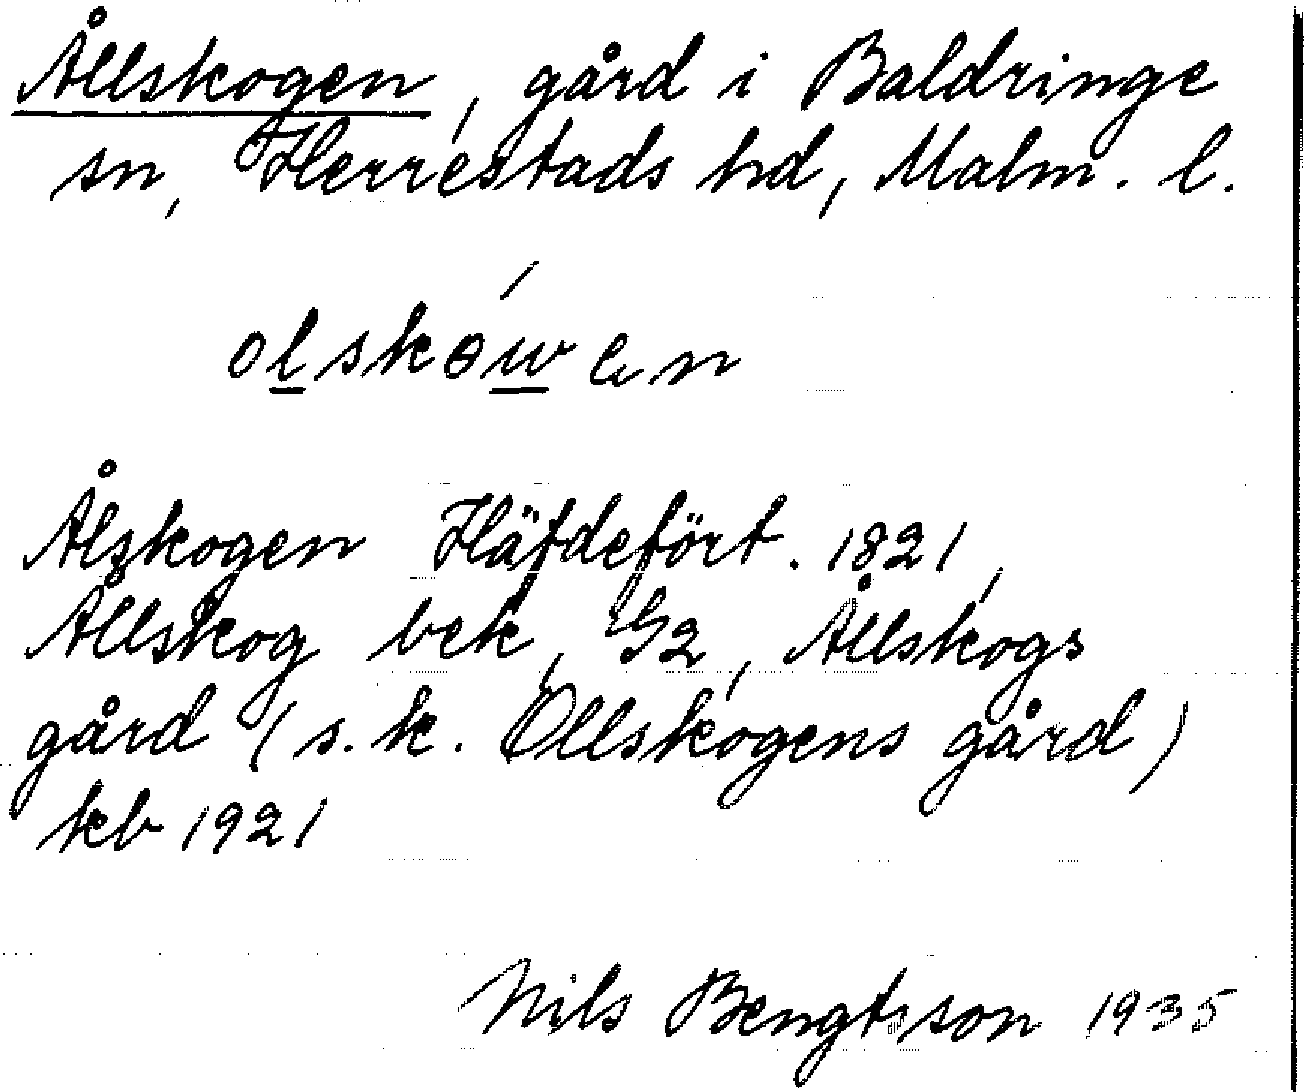 Ållskogen, gård i Baldringe
sn, Herrestads hd, Malm. l.
olskówen
Ålskogen Häfdefört. 1821,
Ållskog bek, G2, Ållskogs
gård (s.k. Ollskogens gård)
kb 1921
Nils Bengtsson 1935